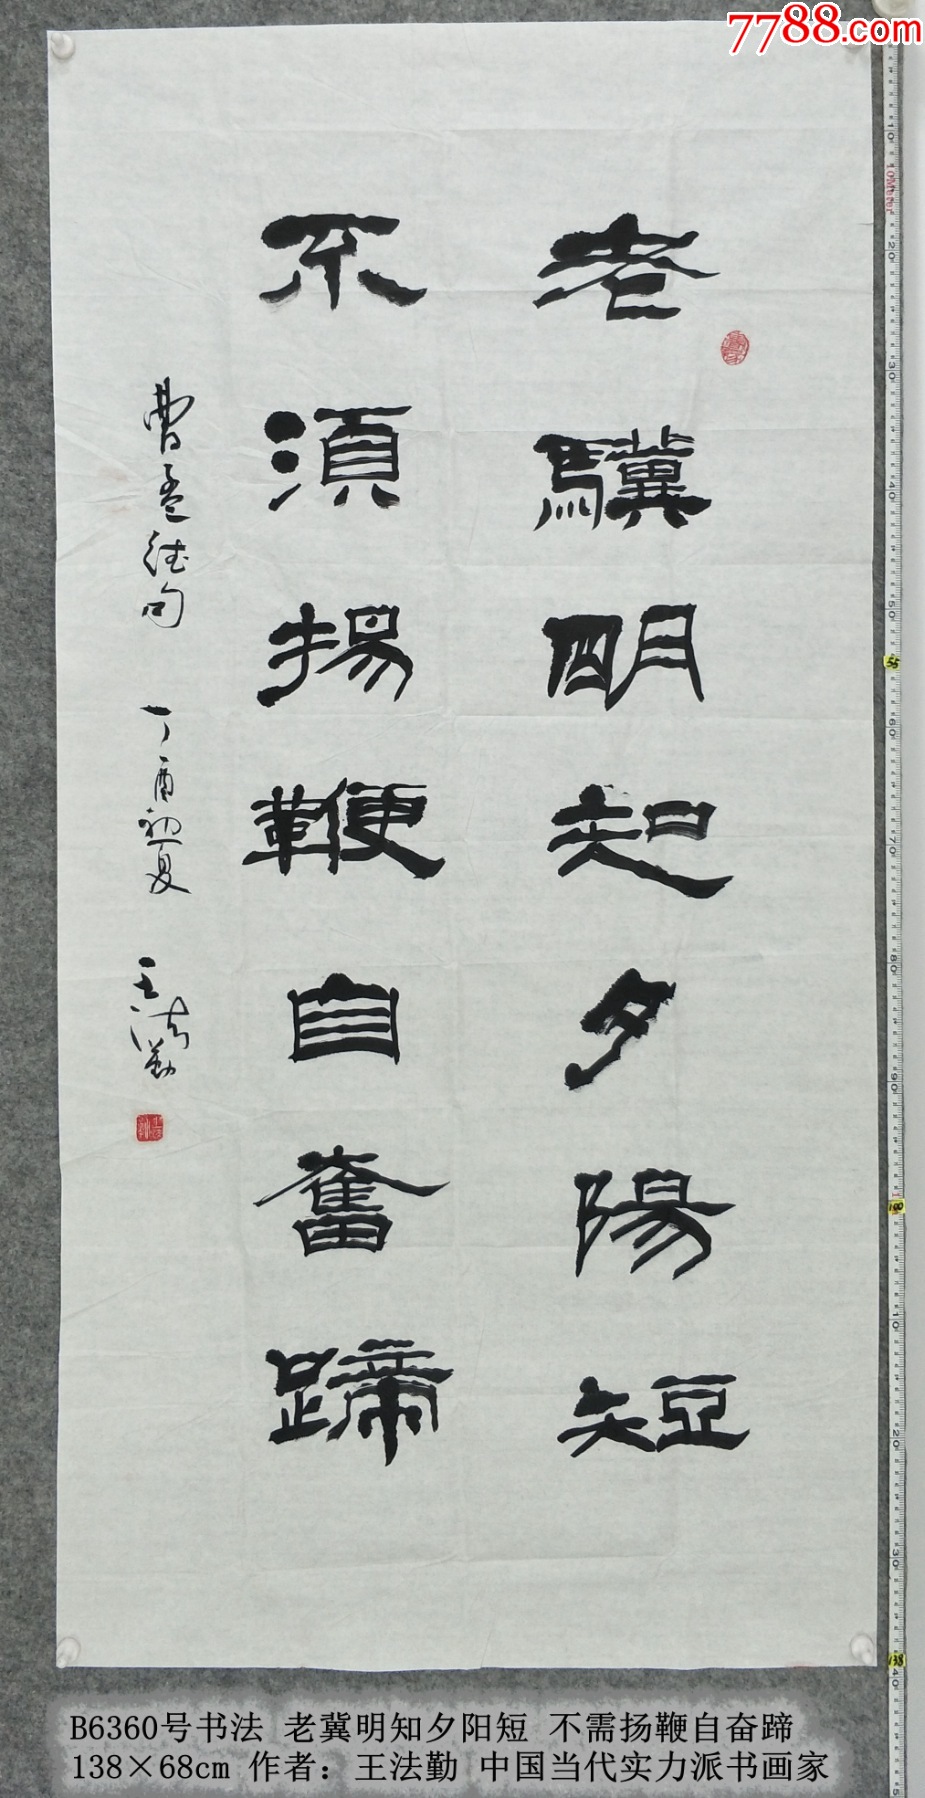 7788.com
老驥明知夕陽短
不須揚鞭自奮蹄
曹孟德句 丁酉初夏 王法勤
B6360号书法 老冀明知夕阳短 不需扬鞭自奋蹄
138×68cm 作者：王法勤 中国当代实力派书画家